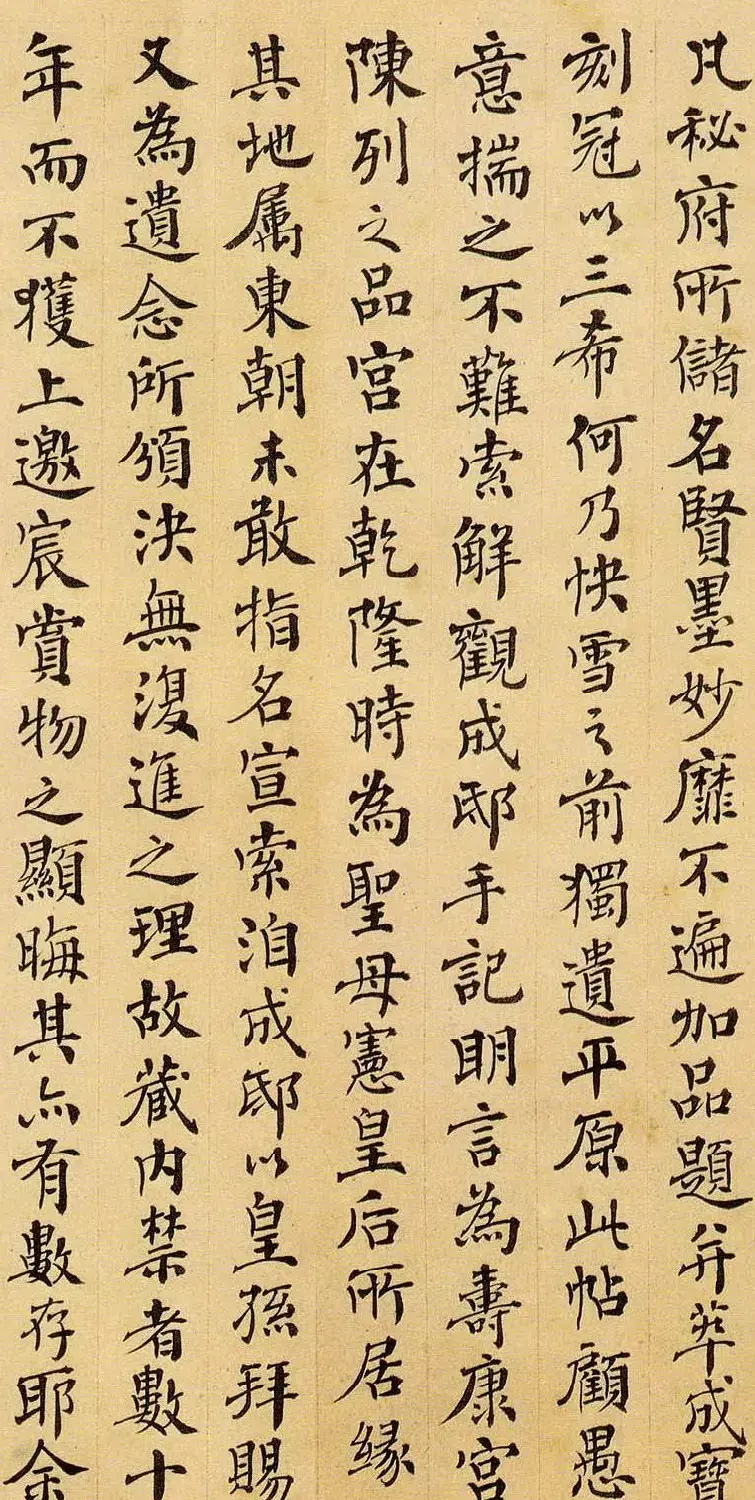 凡秘府所儲名賢墨妙靡不遍加品題并萃成寶
刻冠以三希何乃快雪之前獨遺平原此帖顧愚
意揣之不難索解觀成邸手記明言為壽康宮
陳列之品宮在乾隆時為聖母憲皇后所居緣
其地属東朝未敢指名宣索洎成邸以皇孫拜賜
又為遺念所頒決無復進之理故藏内禁者數十
年而不獲上邀宸賞物之顯晦其亦有數存耶余